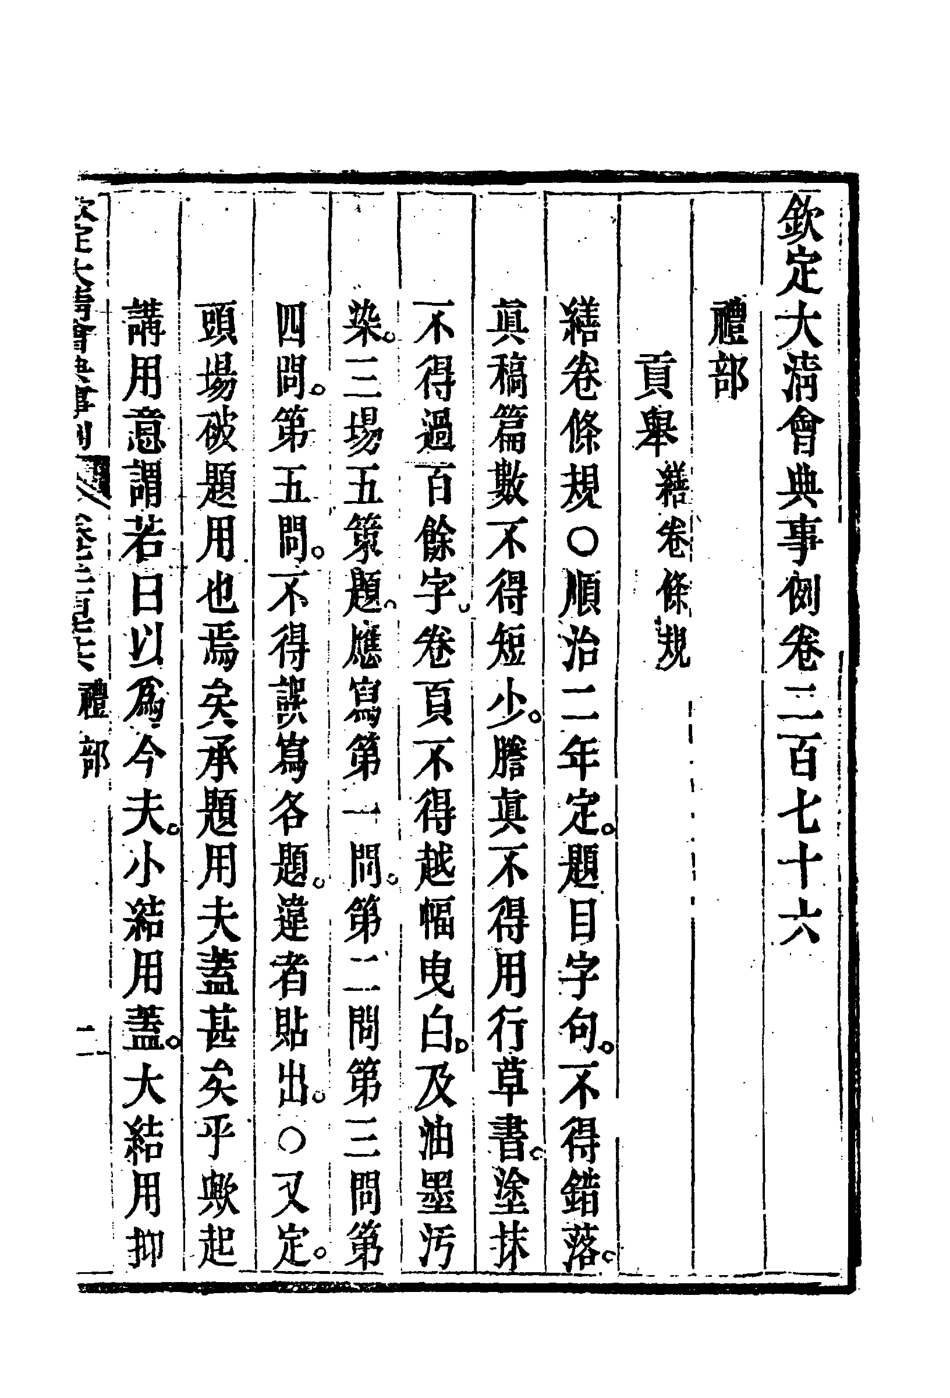 欽定大淸會典事例卷二百七十六
禮部
貢舉繕卷條規
繕卷條規○順治二年定。題目字句。不得錯落。
眞稿篇數不得短少。謄眞不得用行草書。塗抹
不得過百餘字。卷頁不得越幅曳白。及油墨污
染。三場五策題。應寫第一問。第二問第三問第
四問。第五問。不得誤寫各題。違者貼出。○又定。
頭場破題用也焉矣承題用夫蓋甚矣乎歟起
講用意謂若曰以爲今夫。小結用蓋。大結用抑
欽定大淸會典事例 卷二百七十六 禮部 一